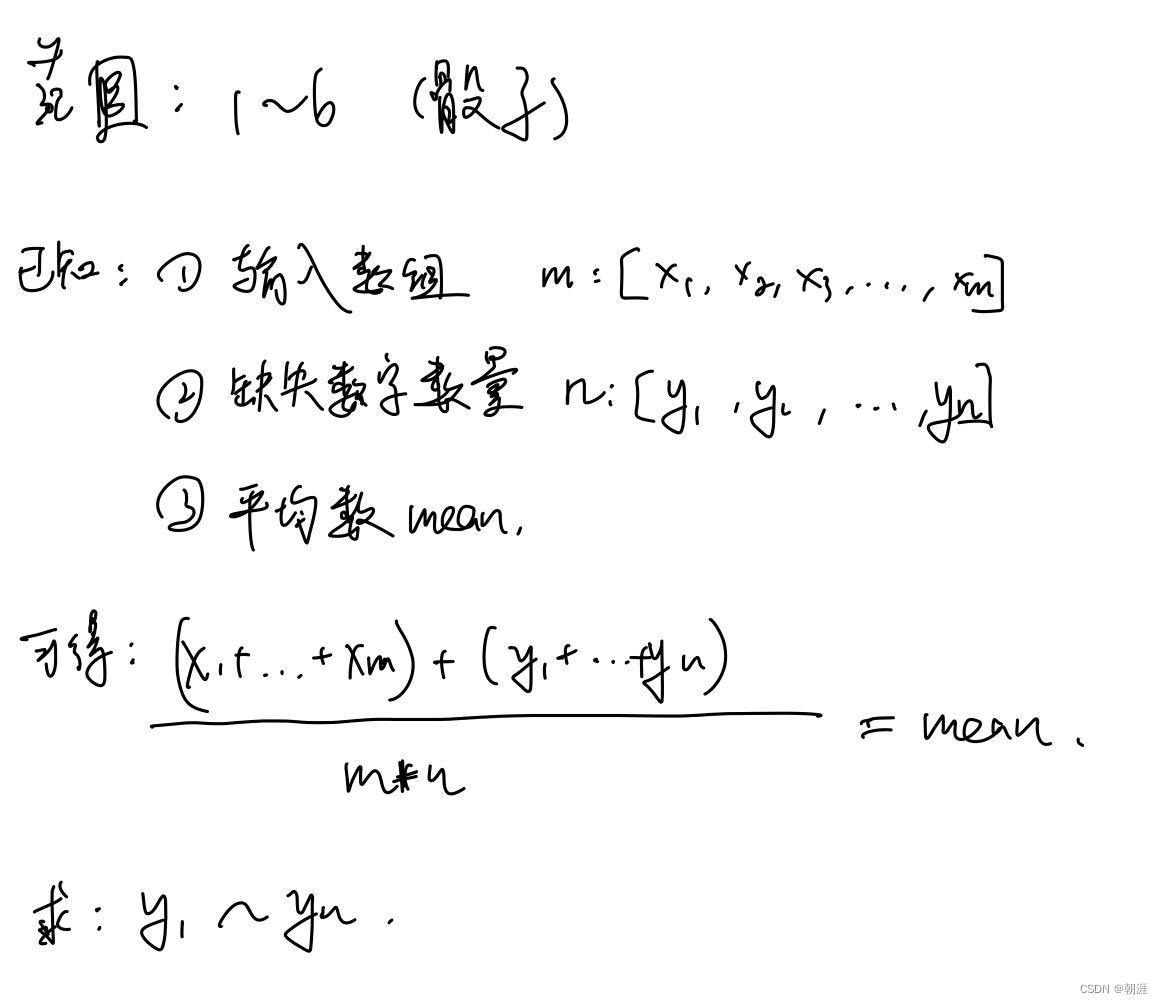 范围: 1~6 (骰子)
已知: ① 输入数组 m: [x₁, x₂, x₃, ..., xm]
② 缺失数字数量 n: [y₁, y₂, ..., yn]
③ 平均数 mean.
可得: (x₁+...+xm) + (y₁+...+yn)
= mean.
m*n
求: y₁ ~ yn.
CSDN @朝涯